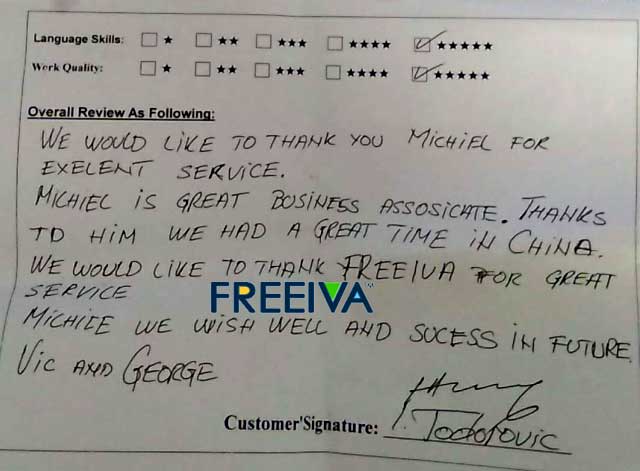 Language Skills: ★ ★★ ★★★ ★★★★ ★★★★★
Work Quality: ★ ★★ ★★★ ★★★★ ★★★★★
Overall Review As Following:
WE WOULD LIKE TO THANK YOU MICHIEL FOR
EXELENT SERVICE.
MICHIEL IS GREAT BUSINESS ASSOSICATE. THANKS
TO HIM WE HAD A GREAT TIME IN CHINA.
WE WOULD LIKE TO THANK FREEIVA FOR GREAT
SERVICE
FREEIVA
MICHIEL WE WISH WELL AND SUCESS IN FUTURE.
VIC AND GEORGE
Customer'Signature: Todorovic